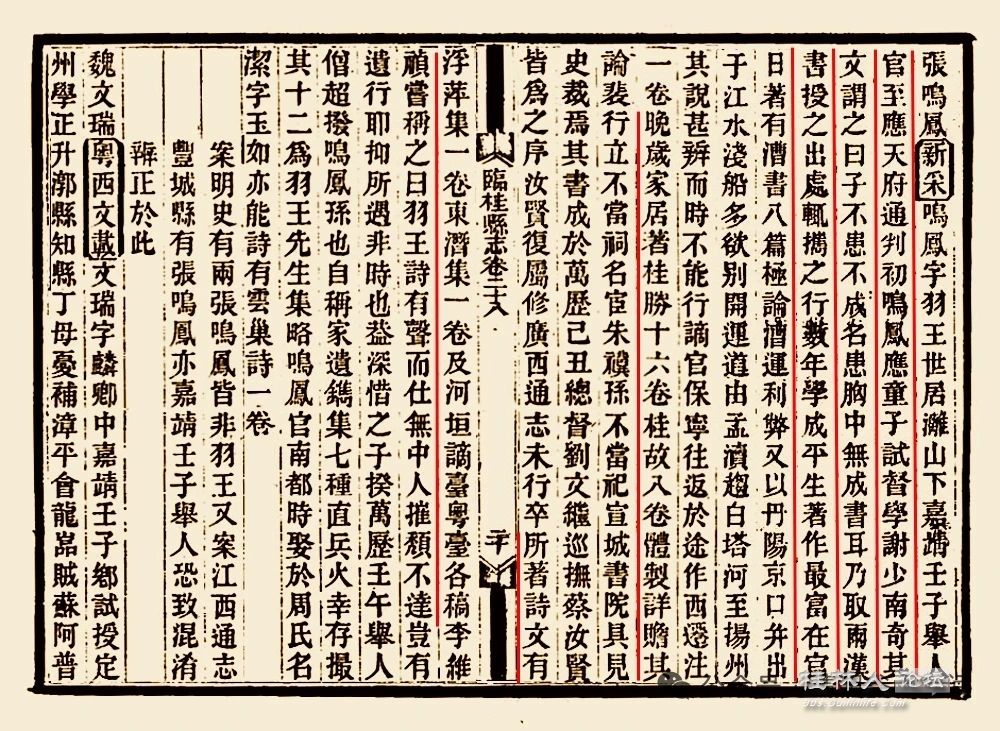 張鳴鳳新采鳴鳳字羽王世居灕山下嘉靖壬子舉人
官至應天府通判初鳴鳳應童子試督學謝少南奇其
文謂之曰子不患不成名患胸中無成書耳乃取兩漢
書授之出處輒攜之行數年學成平生著作最富在官
日著有漕書八篇極論漕運利弊又以丹陽京口幷出
于江水淺船多欲別開運道由孟瀆趨白塔河至揚州
其說甚辨而時不能行謫官保寧往返於途作西遷注
一卷晚歲家居著桂勝十六卷桂故八卷體製詳贍其
論裴行立不當祠名宦朱禩孫不當祀宣城書院具見
史裁焉其書成於萬歷己丑總督劉文繼巡撫蔡汝賢
皆爲之序汝賢復屬修廣西通志未行卒所著詩文有
臨桂縣志卷二十八
三十
浮萍集一卷東潛集一卷及河垣謫臺粵臺各稿李維
禎嘗稱之曰羽王詩有聲而仕無中人摧頹不達豈有
遺行耶抑所遇非時也益深惜之子揆萬歷壬午舉人
僧超撥鳴鳳孫也自稱家遺鐫集七種直兵火幸存撮
其十二爲羽王先生集略鳴鳳官南都時娶於周氏名
潔字玉如亦能詩有雲巢詩一卷
案明史有兩張鳴鳳皆非羽王又案江西通志
豐城縣有張鳴鳳亦嘉靖壬子舉人恐致混淆
辨正於此
魏文瑞粵西文載文瑞字麟卿中嘉靖壬子鄉試授定
州學正升漷縣知縣丁母憂補漳平會龍嵓賊蘇阿普
桂林人论坛